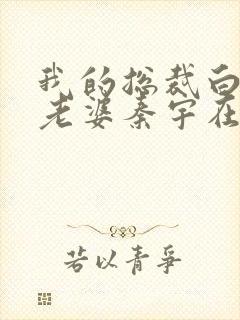 我的总裁白
老婆秦宇在
若以青争